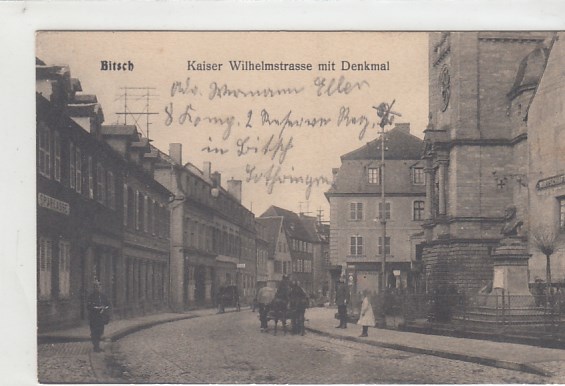 Bitsch
Kaiser Wilhelmstrasse mit Denkmal
Adr. Wormann Eller
8 Komp. 2 Reserve Reg.
in Bitsch
Lothringen